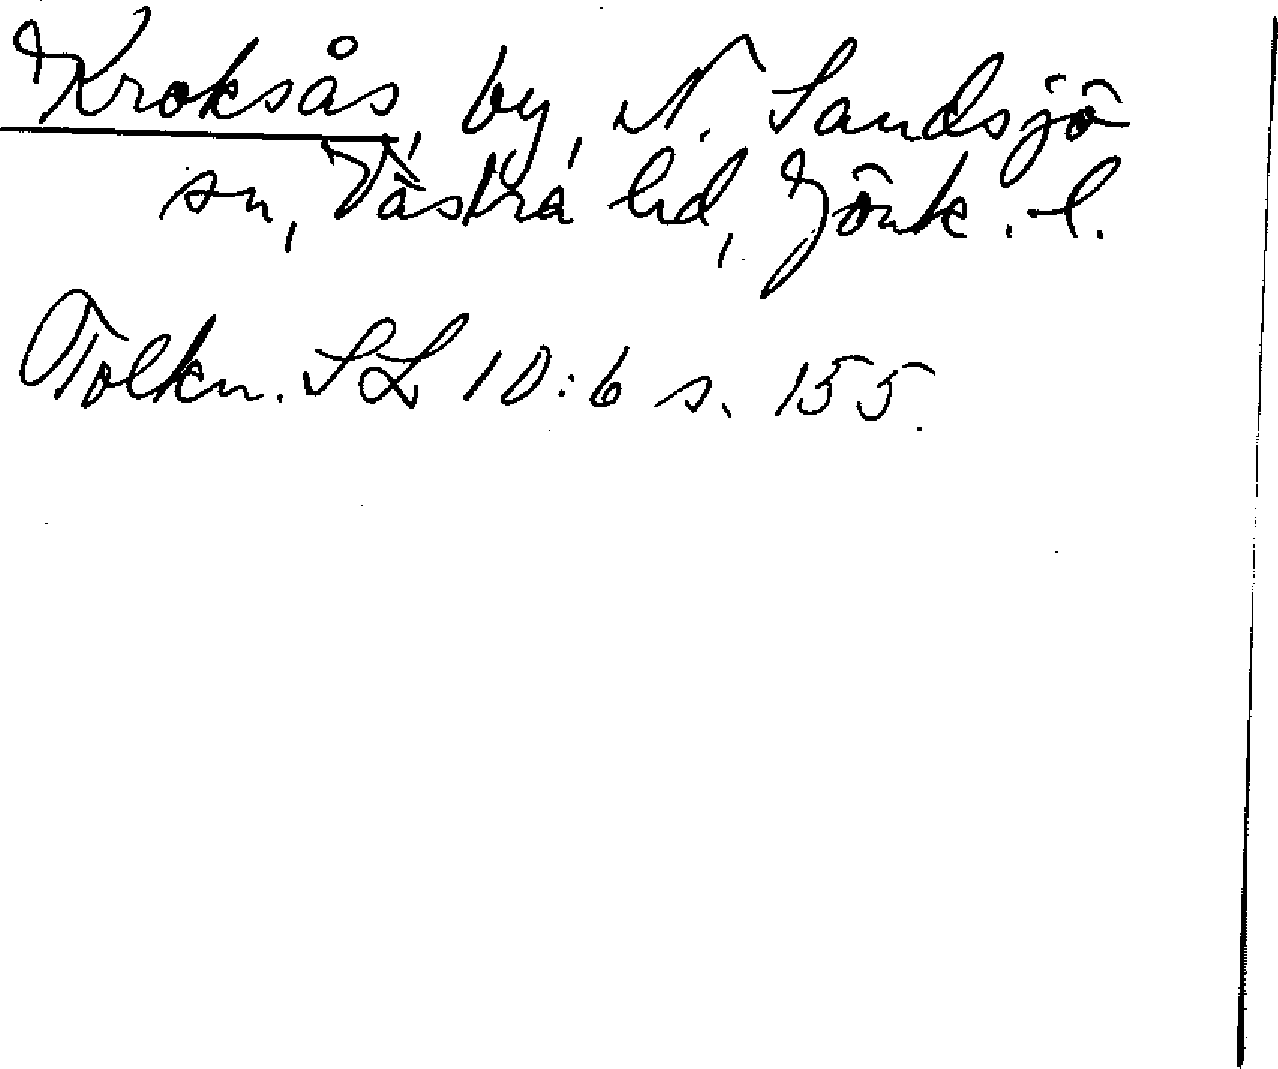 Kroksås, by, N. Sandsjö
sn, Västra hd, Jönk. l.
Tolkn. SL 10:6 s. 155.